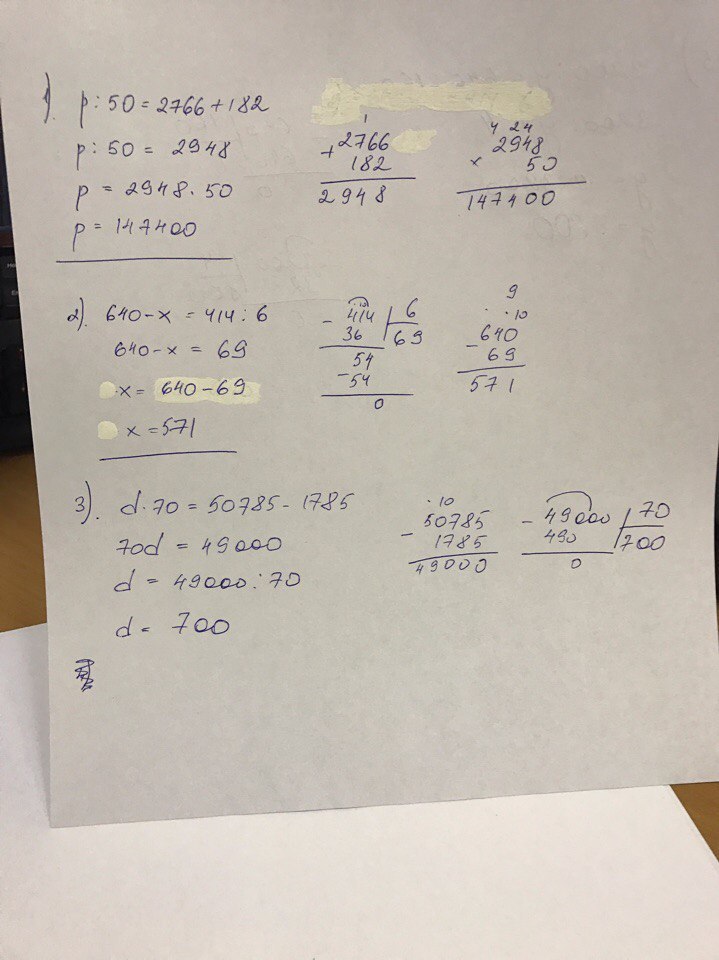 1). p : 50 = 2766 + 182
p : 50 = 2948
p = 2948 · 50
p = 147400
1
+ 2766
182
2948
4 24
× 2948
50
147400
2). 640 - x = 414 : 6
640 - x = 69
x = 640 - 69
x = 571
- 414 | 6
36 69
54
- 54
0
9
· · 10
- 640
69
571
3). d · 70 = 50785 - 1785
70d = 49000
d = 49000 : 70
d = 700
· 10
- 50785
1785
49000
- 49000 | 70
490 700
0